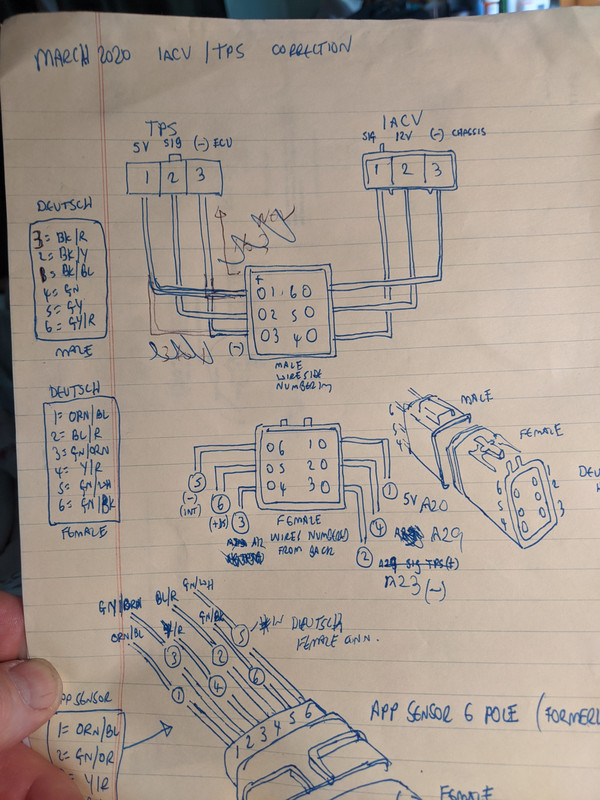 MARCH 2020 IACV / TPS CORRECTION
TPS
5V SIG (-) ECU
1 2 3
IACV
SIG 12V (-) CHASSIS
1 2 3
DEUTSCH
3= BK/R
2= BK/Y
1= BK/BL
4= GN
5= GY
6= GY/R
MALE
+
01. 60
02 50
03 40
(-)
MALE
WIRESIDE
NUMBERING
DEUTSCH
1= ORN/BL
2= BL/R
3= GN/ORN
4= Y/R
5= GN/WH
6= GN/BK
FEMALE
06 10
05 20
04 30
FEMALE
WIRES NUMBERED
FROM BACK
5
(-)
(INT)
6
3
A12
1
5V A20
4
A29
2
A29 SIG TPS(+)
A23 (-)
MALE
6
5
4
FEMALE
6 1
5 2
4 3
GN/WH
BL/R
GY/BRN
GN/BK
ORN/BL
/R
5
IN DEUTSCH
FEMALE CONN.
3
2
1
4
6
1 2 3 4 5 6
APP SENSOR
1= ORN/BL
2= GN/OR
Y/R
APP SENSOR 6 POLE (FORMERL
FEMALE